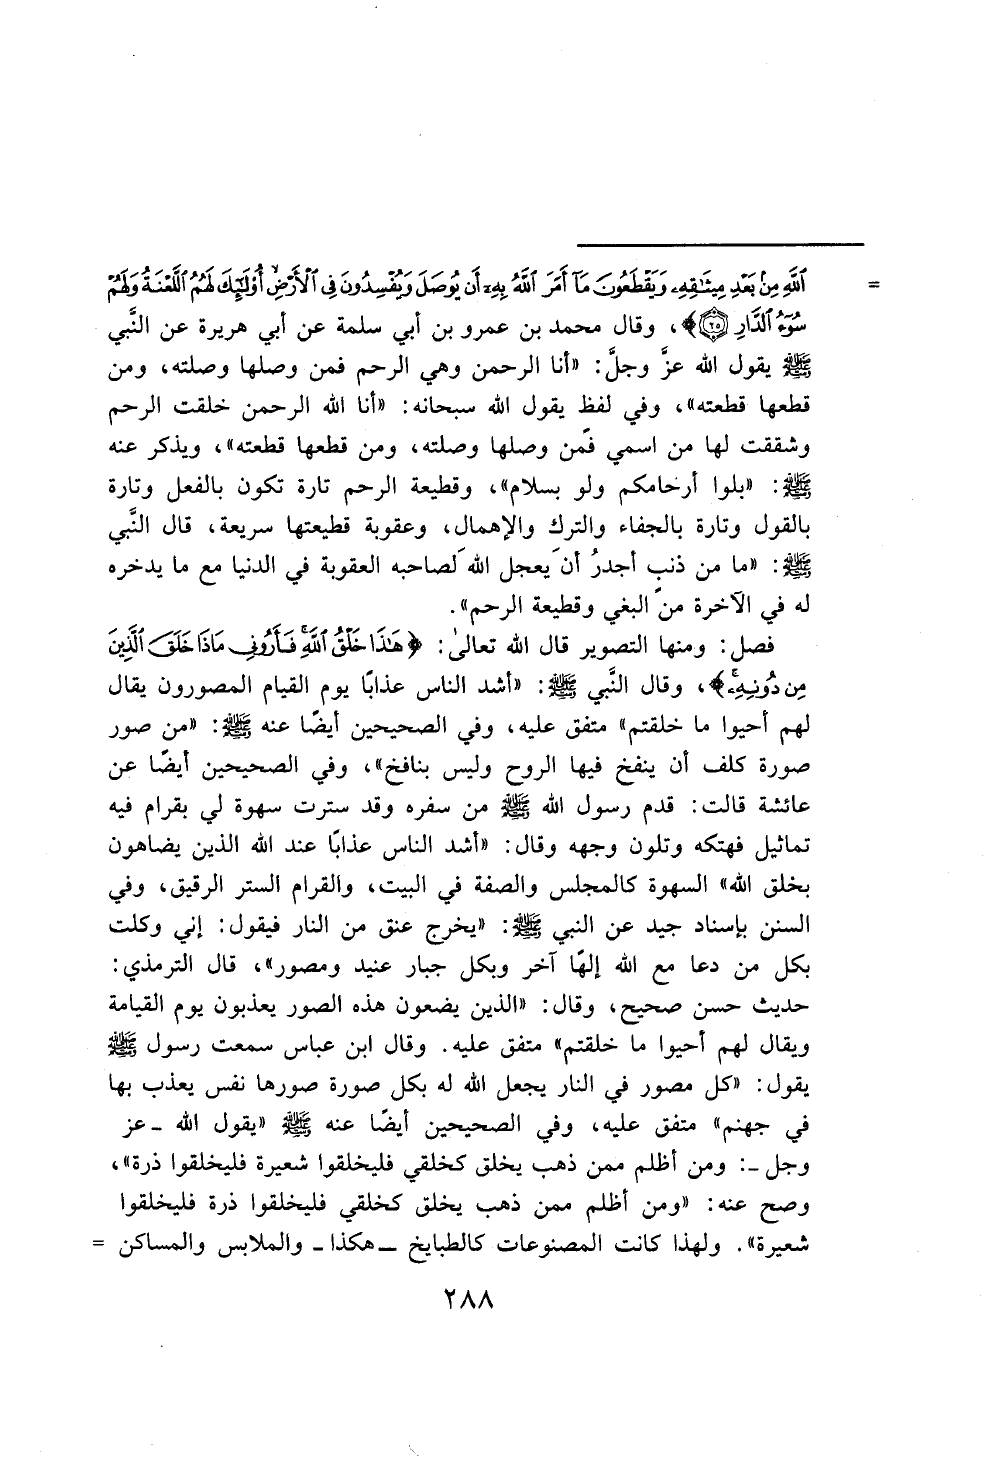 = ٱللَّهِ مِنۢ بَعْدِ مِيثَٰقِهِۦ وَيَقْطَعُونَ مَآ أَمَرَ ٱللَّهُ بِهِۦٓ أَن يُوصَلَ وَيُفْسِدُونَ فِى ٱلْأَرْضِ أُو۟لَٰٓئِكَ لَهُمُ ٱللَّعْنَةُ وَلَهُمْ
سُوٓءُ ٱلدَّارِ ۝٢٥﴾، وقال محمد بن عمرو بن أبي سلمة عن أبي هريرة عن النَّبي
ﷺ يقول الله عزَّ وجلَّ: «أنا الرحمن وهي الرحم فمن وصلها وصلته، ومن
قطعها قطعته»، وفي لفظ يقول الله سبحانه: «أنا الله الرحمن خلقت الرحم
وشققت لها من اسمي فمن وصلها وصلته، ومن قطعها قطعته»، ويذكر عنه
ﷺ: «بلوا أرحامكم ولو بسلام»، وقطيعة الرحم تارة تكون بالفعل وتارة
بالقول وتارة بالجفاء والترك والإهمال، وعقوبة قطيعتها سريعة، قال النَّبي
ﷺ: «ما من ذنب أجدرُ أن يعجل الله لصاحبه العقوبة في الدنيا مع ما يدخره
له في الآخرة من البغي وقطيعة الرحم».
فصل: ومنها التصوير قال الله تعالىٰ: ﴿هَٰذَا خَلْقُ ٱللَّهِ فَأَرُونِى مَاذَا خَلَقَ ٱلَّذِينَ
مِن دُونِهِۦ﴾، وقال النَّبي ﷺ: «أشد الناس عذابًا يوم القيام المصورون يقال
لهم أحيوا ما خلقتم» متفق عليه، وفي الصحيحين أيضًا عنه ﷺ: «من صور
صورة كلف أن ينفخ فيها الروح وليس بنافخ»، وفي الصحيحين أيضًا عن
عائشة قالت: قدم رسول الله ﷺ من سفره وقد سترت سهوة لي بقرام فيه
تماثيل فهتكه وتلون وجهه وقال: «أشد الناس عذابًا عند الله الذين يضاهون
بخلق الله» السهوة كالمجلس والصفة في البيت، والقرام الستر الرقيق، وفي
السنن بإسناد جيد عن النبي ﷺ: «يخرج عنق من النار فيقول: إني وكلت
بكل من دعا مع الله إلهًا آخر وبكل جبار عنيد ومصور»، قال الترمذي:
حديث حسن صحيح، وقال: «الذين يضعون هذه الصور يعذبون يوم القيامة
ويقال لهم أحيوا ما خلقتم» متفق عليه. وقال ابن عباس سمعت رسول ﷺ
يقول: «كل مصور في النار يجعل الله له بكل صورة صورها نفس يعذب بها
في جهنم» متفق عليه، وفي الصحيحين أيضًا عنه ﷺ «يقول الله ـ عز
وجل ـ: ومن أظلم ممن ذهب يخلق كخلقي فليخلقوا شعيرة فليخلقوا ذرة»،
وصح عنه: «ومن أظلم ممن ذهب يخلق كخلقي فليخلقوا ذرة فليخلقوا
شعيرة». ولهذا كانت المصنوعات كالطبايخ ـ هكذا ـ والملابس والمساكن =
٢٨٨